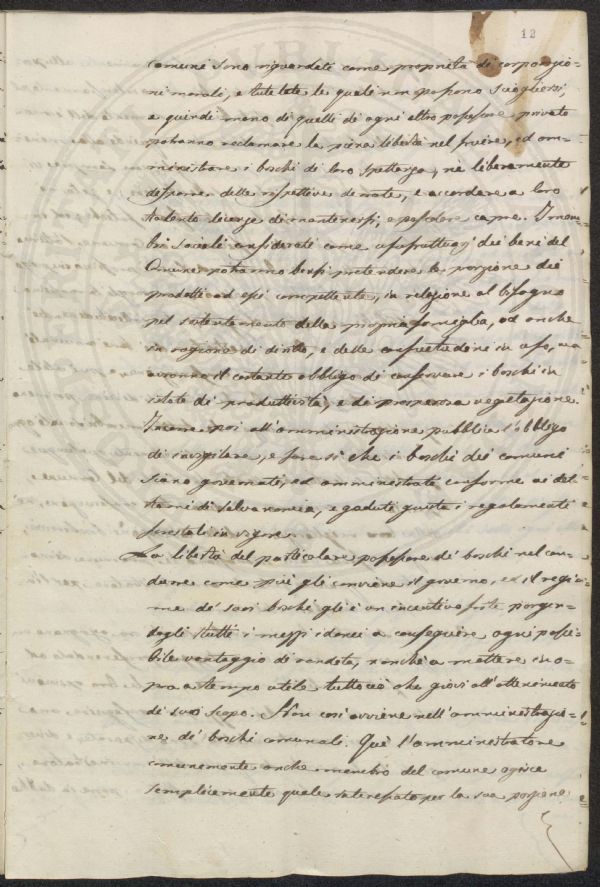 12
comuni sono riguardati come proprietà di corporazio-
ni morali, e tutelate le quali non possono sciogliersi,
e quindi meno di quelli di ogni altro possessore privato
potranno reclamare la piena libertà nel fruire, ed am-
ministrare i boschi di loro spettanza, nè liberamente
disporre delle rispettive derrate, e accordare a loro
talento licenze di mantenervi, e possedere capre. I mem-
bri sociali considerati come usufruttuarj dei beni del
Comune potranno bensì pretendere la porzione dei
prodotti ad essi competente, in relazione al bisogno
pel sostentamento della propria famiglia, od anche
in ragione di diritto, e delle consuetudini in uso, ma
avranno il costante obbligo di conservare i boschi in
istato di produttività, e di prosperosa vegetazione.
Incombe poi all'amministrazione pubblica l'obbligo
di invigilare, e fare sì che i boschi dei comuni
siano governati, ed amministrati conforme ai det-
tami di selvonomia, e goduti giusta i regolamenti
forestali in vigore.
La libertà del particolare possessore de' boschi nel con-
durre come più gli conviene il governo, ed il regi-
me de' suoi boschi gli è un incentivo forte porgen-
dogli tutti i mezzi idonei a conseguire ogni possi-
bile vantaggio di rendita, nonchè a mettere in o-
pra a tempo utile tutto ciò che giovi all'ottenimento
de' suoi scopo. Non così avviene nell'amministrazio-
ne de' boschi comunali. Qui l'amministratore
comunemente anche membro del comune agisce
semplicemente quale interessato per la sua porzione